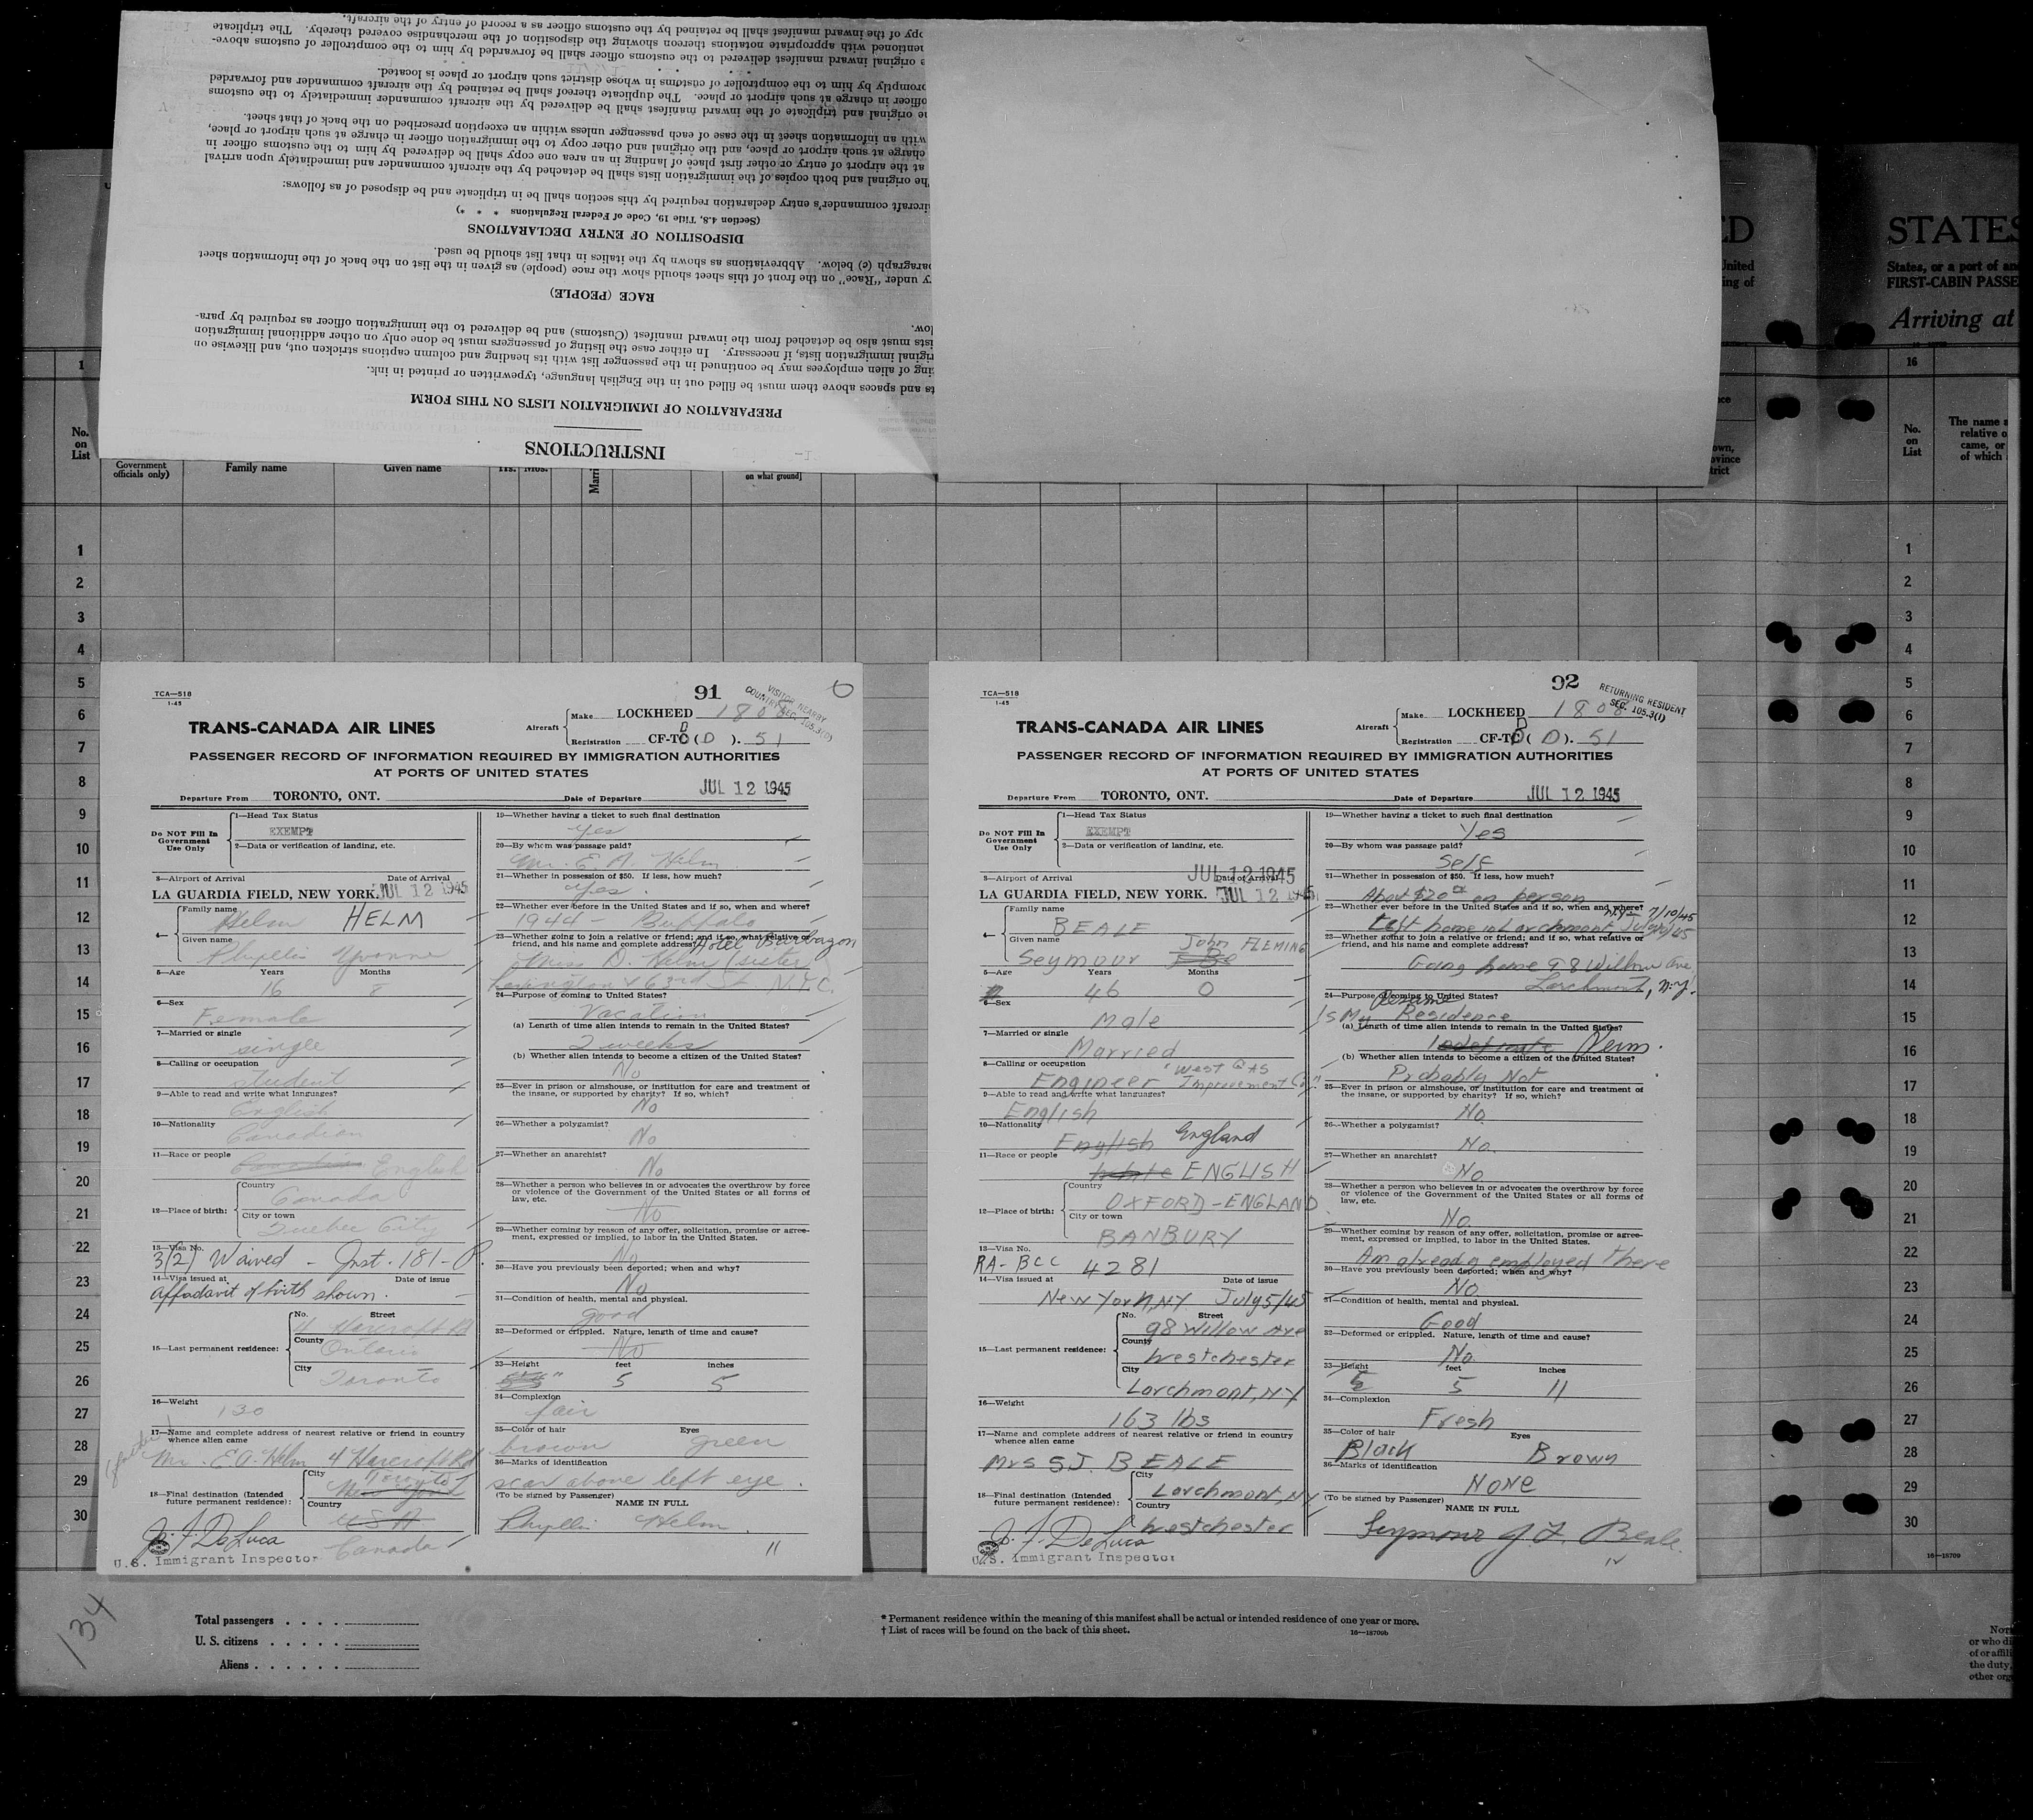 INSTRUCTIONS
PREPARATION OF IMMIGRATION LISTS ON THIS FORM
ts and spaces above them must be filled out in the English language, typewritten or printed in ink.
ing of alien employees may be continued in the passenger list with its heading and column captions stricken out, and likewise on
riginal immigration lists, if necessary. In either case the listing of passengers must be done only on other additional immigration
ists must also be detached from the inward manifest (Customs) and be delivered to the immigration officer as required by para-
low.
RACE (PEOPLE)
ry under "Race" on the front of this sheet should show the race (people) as given in the list on the back of the information sheet
paragraph (c) below. Abbreviations as shown by the italics in that list should be used.
DISPOSITION OF ENTRY DECLARATIONS
(Section 4.8, Title 19, Code of Federal Regulations * * *)
ircraft commander's entry declaration required by this section shall be in triplicate and be disposed of as follows:
The original and both copies of the immigration lists shall be detached by the aircraft commander and immediately upon arrival
at the airport of entry or other first place of landing in an area one copy shall be delivered by him to the customs officer in
charge at such airport or place, and the original and other copy to the immigration officer in charge at such airport or place,
with an information sheet in the case of each passenger unless within an exception prescribed on the back of that sheet.
he original and triplicate of the inward manifest shall be delivered by the aircraft commander immediately to the customs
officer in charge at such airport or place. The duplicate thereof shall be retained by the aircraft commander and forwarded
promptly by him to the comptroller of customs in whose district such airport or place is located.
e original inward manifest delivered to the customs officer shall be forwarded by him to the comptroller of customs above-
mentioned with appropriate notations thereon showing the disposition of the merchandise covered thereby. The triplicate
opy of the inward manifest shall be retained by the customs officer as a record of entry of the aircraft.
ED
STATES
United
ing of
States, or a port of an
FIRST-CABIN PASSE
Arriving at
1
16
No. on List
Government officials only)
Family name
Given name
Yrs.
Mos.
on what ground]
own,
ovince
trict
No. on List
The name a
relative o
came, or
of which
1
2
3
4
5
6
7
8
9
10
11
12
13
14
15
16
17
18
19
20
21
22
23
24
25
26
27
28
29
30
TCA—518
1-45
91
VISITOR NEARBY
COUNTRY SEC. 105.3(I)
TRANS-CANADA AIR LINES
Aircraft
Make LOCKHEED 1808
Registration CF-TC (D ). 51
PASSENGER RECORD OF INFORMATION REQUIRED BY IMMIGRATION AUTHORITIES
AT PORTS OF UNITED STATES
Departure From TORONTO, ONT. Date of Departure JUL 12 1945
Do NOT Fill In Government Use Only
1—Head Tax Status
EXEMPT
2—Data or verification of landing, etc.
3—Airport of Arrival Date of Arrival
LA GUARDIA FIELD, NEW YORK. JUL 12 1945
4— Family name
Helm HELM
Given name
Phyllis Yvonne
5—Age Years Months
16 8
6—Sex
Female
7—Married or single
single
8—Calling or occupation
student
9—Able to read and write what languages?
English
10—Nationality
Canadian
11—Race or people
Canadian English
12—Place of birth: Country
Canada
City or town
Quebec City
13—Visa No.
3(2) Waived - Inst. 181-P.
14—Visa issued at Date of issue
Affadavit of birth shown.
15—Last permanent residence: No. Street
4 Harcroft Rd
County
Ontario
City
Toronto
16—Weight
130
17—Name and complete address of nearest relative or friend in country
whence alien came
(father)
Mr. E.A. Helm 4 Harcroft Rd
Toronto
18—Final destination (Intended future permanent residence): City
New York
Country
USA
Canada
J. J. De Luca
U.S. Immigrant Inspector
19—Whether having a ticket to such final destination
Yes
20—By whom was passage paid?
Mr. E. A. Helm
21—Whether in possession of $50. If less, how much?
Yes.
22—Whether ever before in the United States and if so, when and where?
1944 - Buffalo
23—Whether going to join a relative or friend; and if so, what relative or
friend, and his name and complete address? Hotel Barbazon
Miss D. Helm (sister)
Lexington & 63rd St. N.Y.C.
24—Purpose of coming to United States?
Vacation
(a) Length of time alien intends to remain in the United States?
2 weeks
(b) Whether alien intends to become a citizen of the United States?
No
25—Ever in prison or almshouse, or institution for care and treatment of
the insane, or supported by charity? If so, which?
No
26—Whether a polygamist?
No
27—Whether an anarchist?
No
28—Whether a person who believes in or advocates the overthrow by force
or violence of the Government of the United States or all forms of
law, etc.
No
29—Whether coming by reason of any offer, solicitation, promise or agree-
ment, expressed or implied, to labor in the United States.
No
30—Have you previously been deported; when and why?
No
31—Condition of health, mental and physical.
good
32—Deformed or crippled. Nature, length of time and cause?
No
33—Height feet inches
5 5
34—Complexion
fair
35—Color of hair Eyes
brown green
36—Marks of identification
scar above left eye.
(To be signed by Passenger)
NAME IN FULL
Phyllis Helm.
11
TCA—518
1-45
92
RETURNING RESIDENT
SEC. 105.3(I)
TRANS-CANADA AIR LINES
Aircraft
Make LOCKHEED 1808
Registration CF-TC ( D ). 51
PASSENGER RECORD OF INFORMATION REQUIRED BY IMMIGRATION AUTHORITIES
AT PORTS OF UNITED STATES
Departure From TORONTO, ONT. Date of Departure JUL 12 1945
Do NOT Fill In Government Use Only
1—Head Tax Status
EXEMPT
2—Data or verification of landing, etc.
JUL 12 1945
3—Airport of Arrival Date of Arrival
LA GUARDIA FIELD, NEW YORK. JUL 12 1945
4— Family name
BEALE
Given name John FLEMING
Seymour
5—Age Years Months
46 0
6—Sex
Male
7—Married or single
Married
8—Calling or occupation "West Gas
Engineer Improvement Co."
9—Able to read and write what languages?
English
10—Nationality
English England
11—Race or people
white ENGLISH
12—Place of birth: Country
OXFORD-ENGLAND
City or town
BANBURY
13—Visa No.
RA-BCC 4281
14—Visa issued at Date of issue
New York, NY July 5/45
15—Last permanent residence: No. Street
98 Willow Ave
County
Westchester
City
Larchmont, NY
16—Weight
163 lbs
17—Name and complete address of nearest relative or friend in country
whence alien came
Mrs S J. BEALE
18—Final destination (Intended future permanent residence): City
Larchmont, NY
Country
Westchester
J. J. De Luca
U.S. Immigrant Inspector
19—Whether having a ticket to such final destination
Yes
20—By whom was passage paid?
Self
21—Whether in possession of $50. If less, how much?
About $20 on person
22—Whether ever before in the United States and if so, when and where?
N.Y. 7/10/45
Left home in Larchmont, July 10/45
23—Whether going to join a relative or friend; and if so, what relative or
friend, and his name and complete address?
Going home 98 Willow Ave
Larchmont, N.Y.
24—Purpose of coming to United States?
Resume
Is My Residence
(a) Length of time alien intends to remain in the United States?
Indefinite Perm.
(b) Whether alien intends to become a citizen of the United States?
Probably Not
25—Ever in prison or almshouse, or institution for care and treatment of
the insane, or supported by charity? If so, which?
No
26—Whether a polygamist?
No.
27—Whether an anarchist?
No
28—Whether a person who believes in or advocates the overthrow by force
or violence of the Government of the United States or all forms of
law, etc.
No.
29—Whether coming by reason of any offer, solicitation, promise or agree-
ment, expressed or implied, to labor in the United States.
Am already employed there
30—Have you previously been deported; when and why?
No
31—Condition of health, mental and physical.
Good
32—Deformed or crippled. Nature, length of time and cause?
No
33—Height feet inches
5 11
34—Complexion
Fresh
35—Color of hair Eyes
Black Brown
36—Marks of identification
NONE
(To be signed by Passenger)
NAME IN FULL
Seymour J. F. Beale.
1
2
3
4
5
6
7
8
9
10
11
12
13
14
15
16
17
18
19
20
21
22
23
24
25
26
27
28
29
30
16—18709
134
Total passengers
U. S. citizens
Aliens
* Permanent residence within the meaning of this manifest shall be actual or intended residence of one year or more.
† List of races will be found on the back of this sheet.
16—18709b
NOTE
or who di
of or affili
the duty,
other org